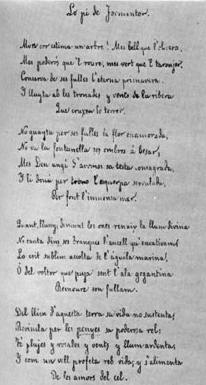 Lo pi de Formentor.
Mon cor estima un arbre! Mes vell que l'olivera,
Mes poderós que'l roure, mes vert que'l taronjer,
Conserva de ses fulles l'eterna primavera,
I lluyta ab les tronades y vents de la ribera
Que cruxen lo terrer.
No guayta per ses fulles la flor enamorada,
No va la fontanella ses ombres á besar,
Mes Deu ungí d'aroma sa testa consagrada,
I li doná per trono l'esquerpa serralada,
Per font l'immensa mar.
Quant, lluny, damunt les ones renaix la llum divina
No canta dins ses branques l'aucell qu'encativam;
Lo crit sublim escolta de l'águila marina,
Ó del voltor que puja sent l'ala gegantina
Remoure son fullam.
Del llim d'aquesta terra sa vida no sustenta;
Revincla per les penyes sa poderosa rel;
Té plujes y rosades y vents y llum ardenta,
I com un vell profeta reb vida, y s'alimenta
De les amors del cel.